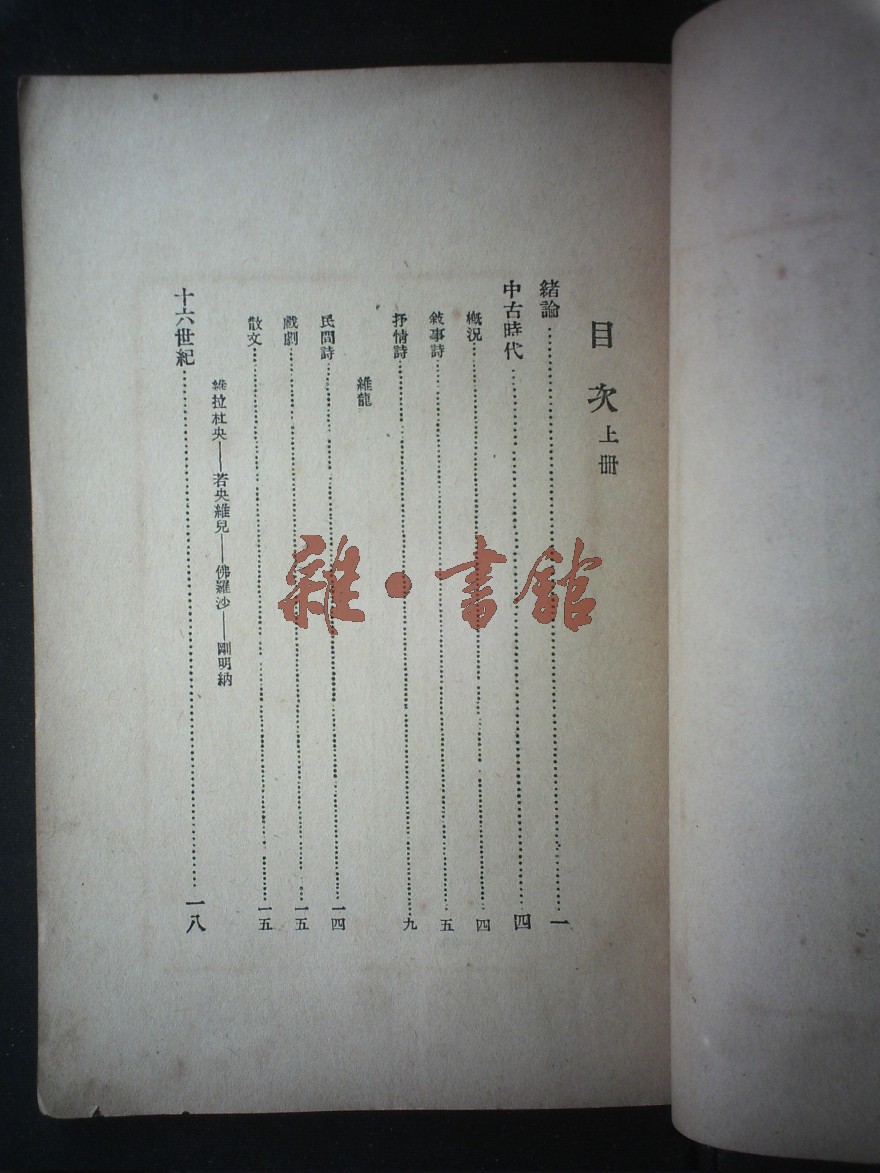 目次 上冊
緒論……一
中古時代……四
概況……四
敍事詩……五
抒情詩……九
維龍
民間詩……一四
戲劇……一五
散文……一五
維拉杜央——若央維兒——佛羅沙——剛明納
十六世紀……一八
雜·書館